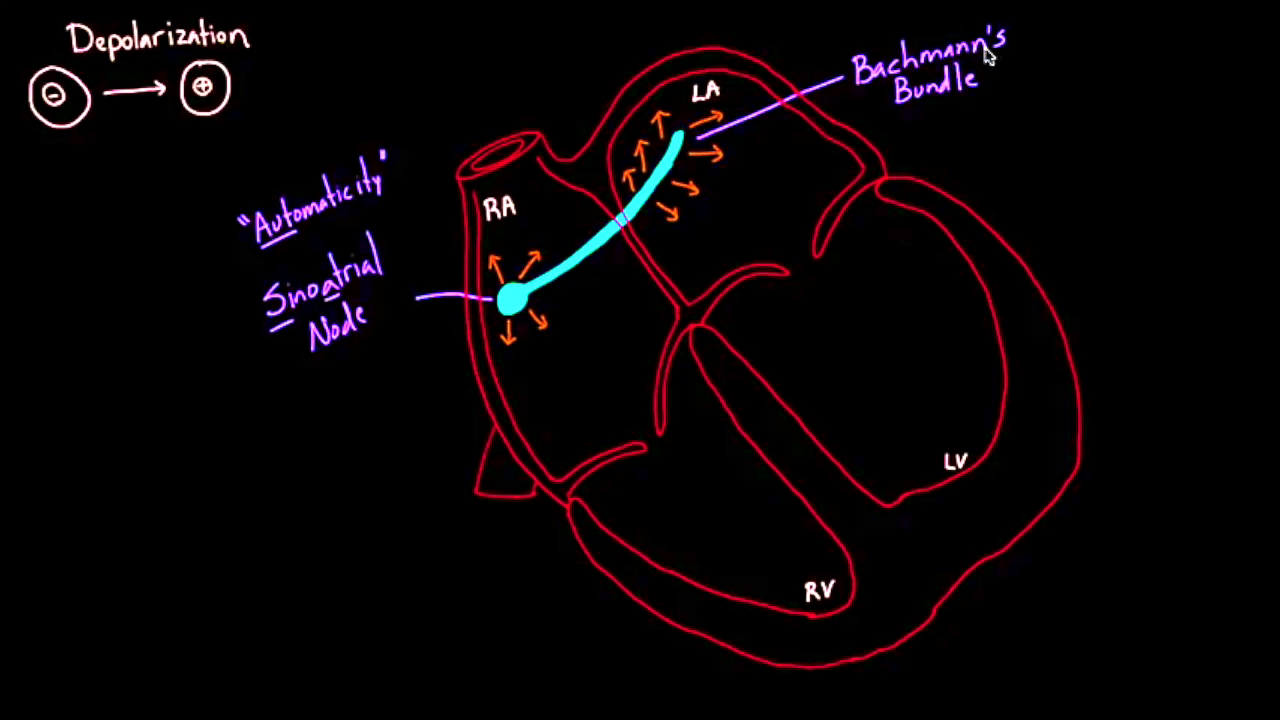 Depolarization
- +
"Automaticity"
Sinoatrial
Node
RA
LA
Bachmann's
Bundle
LV
RV